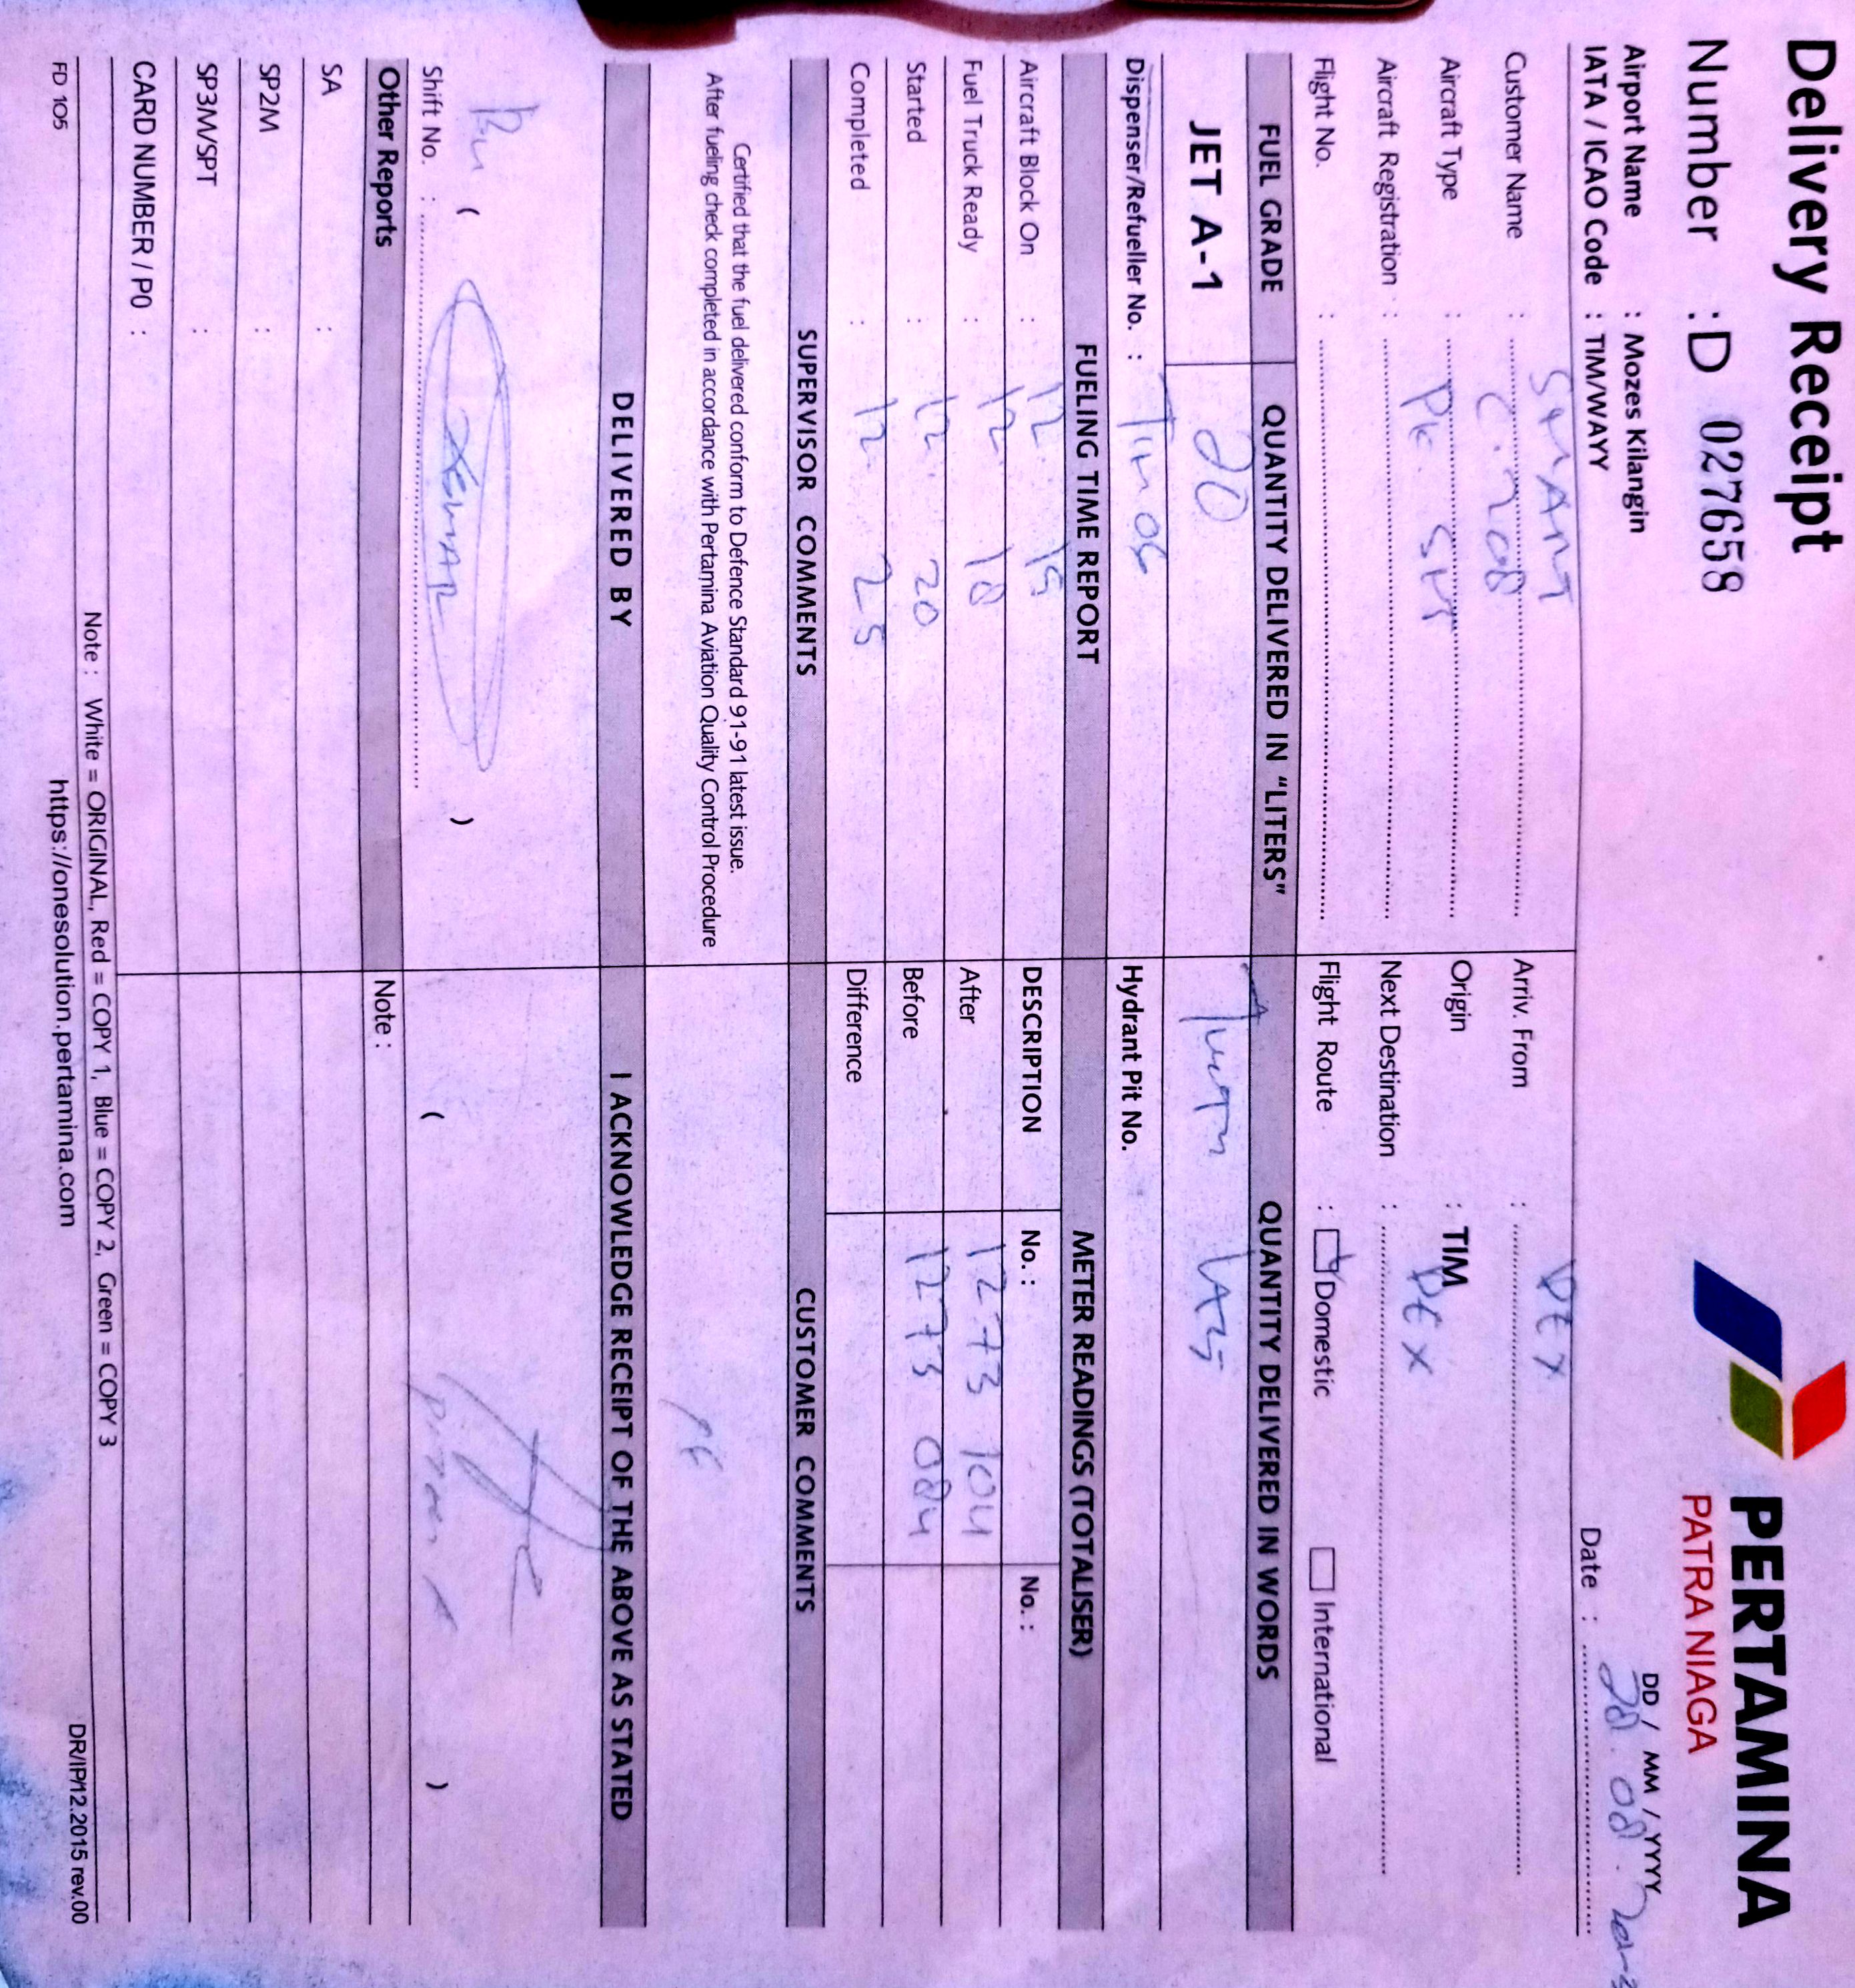 Delivery Receipt
PERTAMINA
PATRA NIAGA
Number : D 027658
Airport Name : Mozes Kilangin
DD / MM / YYYY
IATA / ICAO Code : TIM/WAYY
Date :
Customer Name : SMART
Arriv. From : DEX
Aircraft Type : C. 208
Origin : TIM
Aircraft Registration : PK.
Next Destination : DEX
Flight No. :
Flight Route : Domestic International
FUEL GRADE QUANTITY DELIVERED IN "LITERS" QUANTITY DELIVERED IN WORDS
JET A-1 20
Dispenser/Refueller No. :
Hydrant Pit No.
FUELING TIME REPORT METER READINGS (TOTALISER)
Aircraft Block On : 12. 15
DESCRIPTION No. : No. :
Fuel Truck Ready : 12. 18
After 1273 104
Started : 12. 20
Before 1273 084
Completed : 12. 25
Difference
SUPERVISOR COMMENTS CUSTOMER COMMENTS
Certified that the fuel delivered conform to Defence Standard 91-91 latest issue.
After fueling check completed in accordance with Pertamina Aviation Quality Control Procedure
DELIVERED BY I ACKNOWLEDGE RECEIPT OF THE ABOVE AS STATED
( ) ( )
Shift No. :
Other Reports Note :
SA :
SP2M :
SP3M/SPT :
CARD NUMBER / P0 :
Note : White = ORIGINAL, Red = COPY 1, Blue = COPY 2, Green = COPY 3
FD 105 https://onesolution.pertamina.com DR/IP/12.2015 rev.00